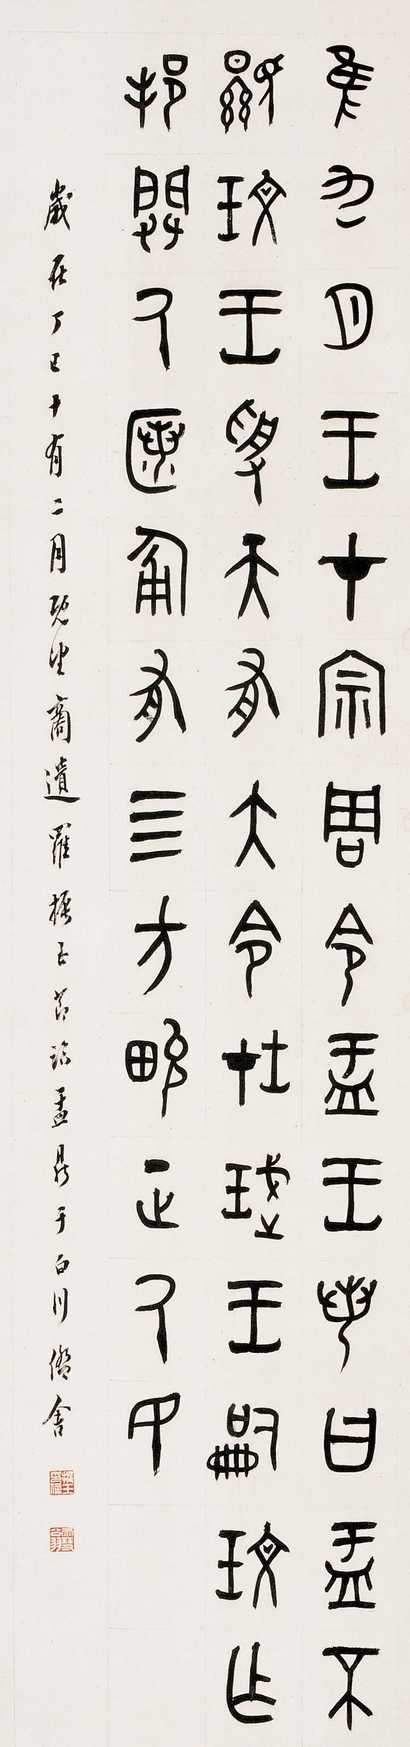 隹九月王才宗周令盂王若曰盂不
顯玟王受天有大令在珷王嗣玟乍
邦闢氒匿匍有四方畯正氒民
歲在丁巳十有二月既望商遺羅振玉節臨盂鼎于白川僑舍